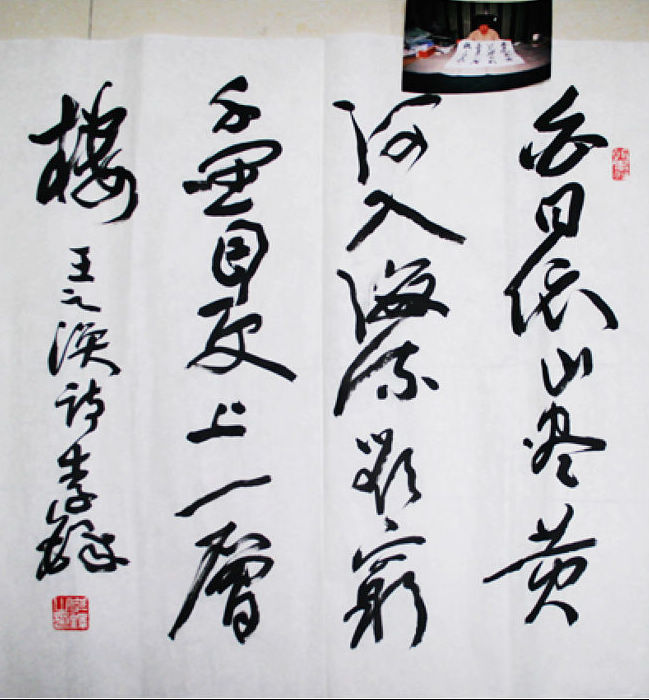 白日依山尽黄
河入海流欲窮
千里目更上一層
樓
王之涣诗李鐸